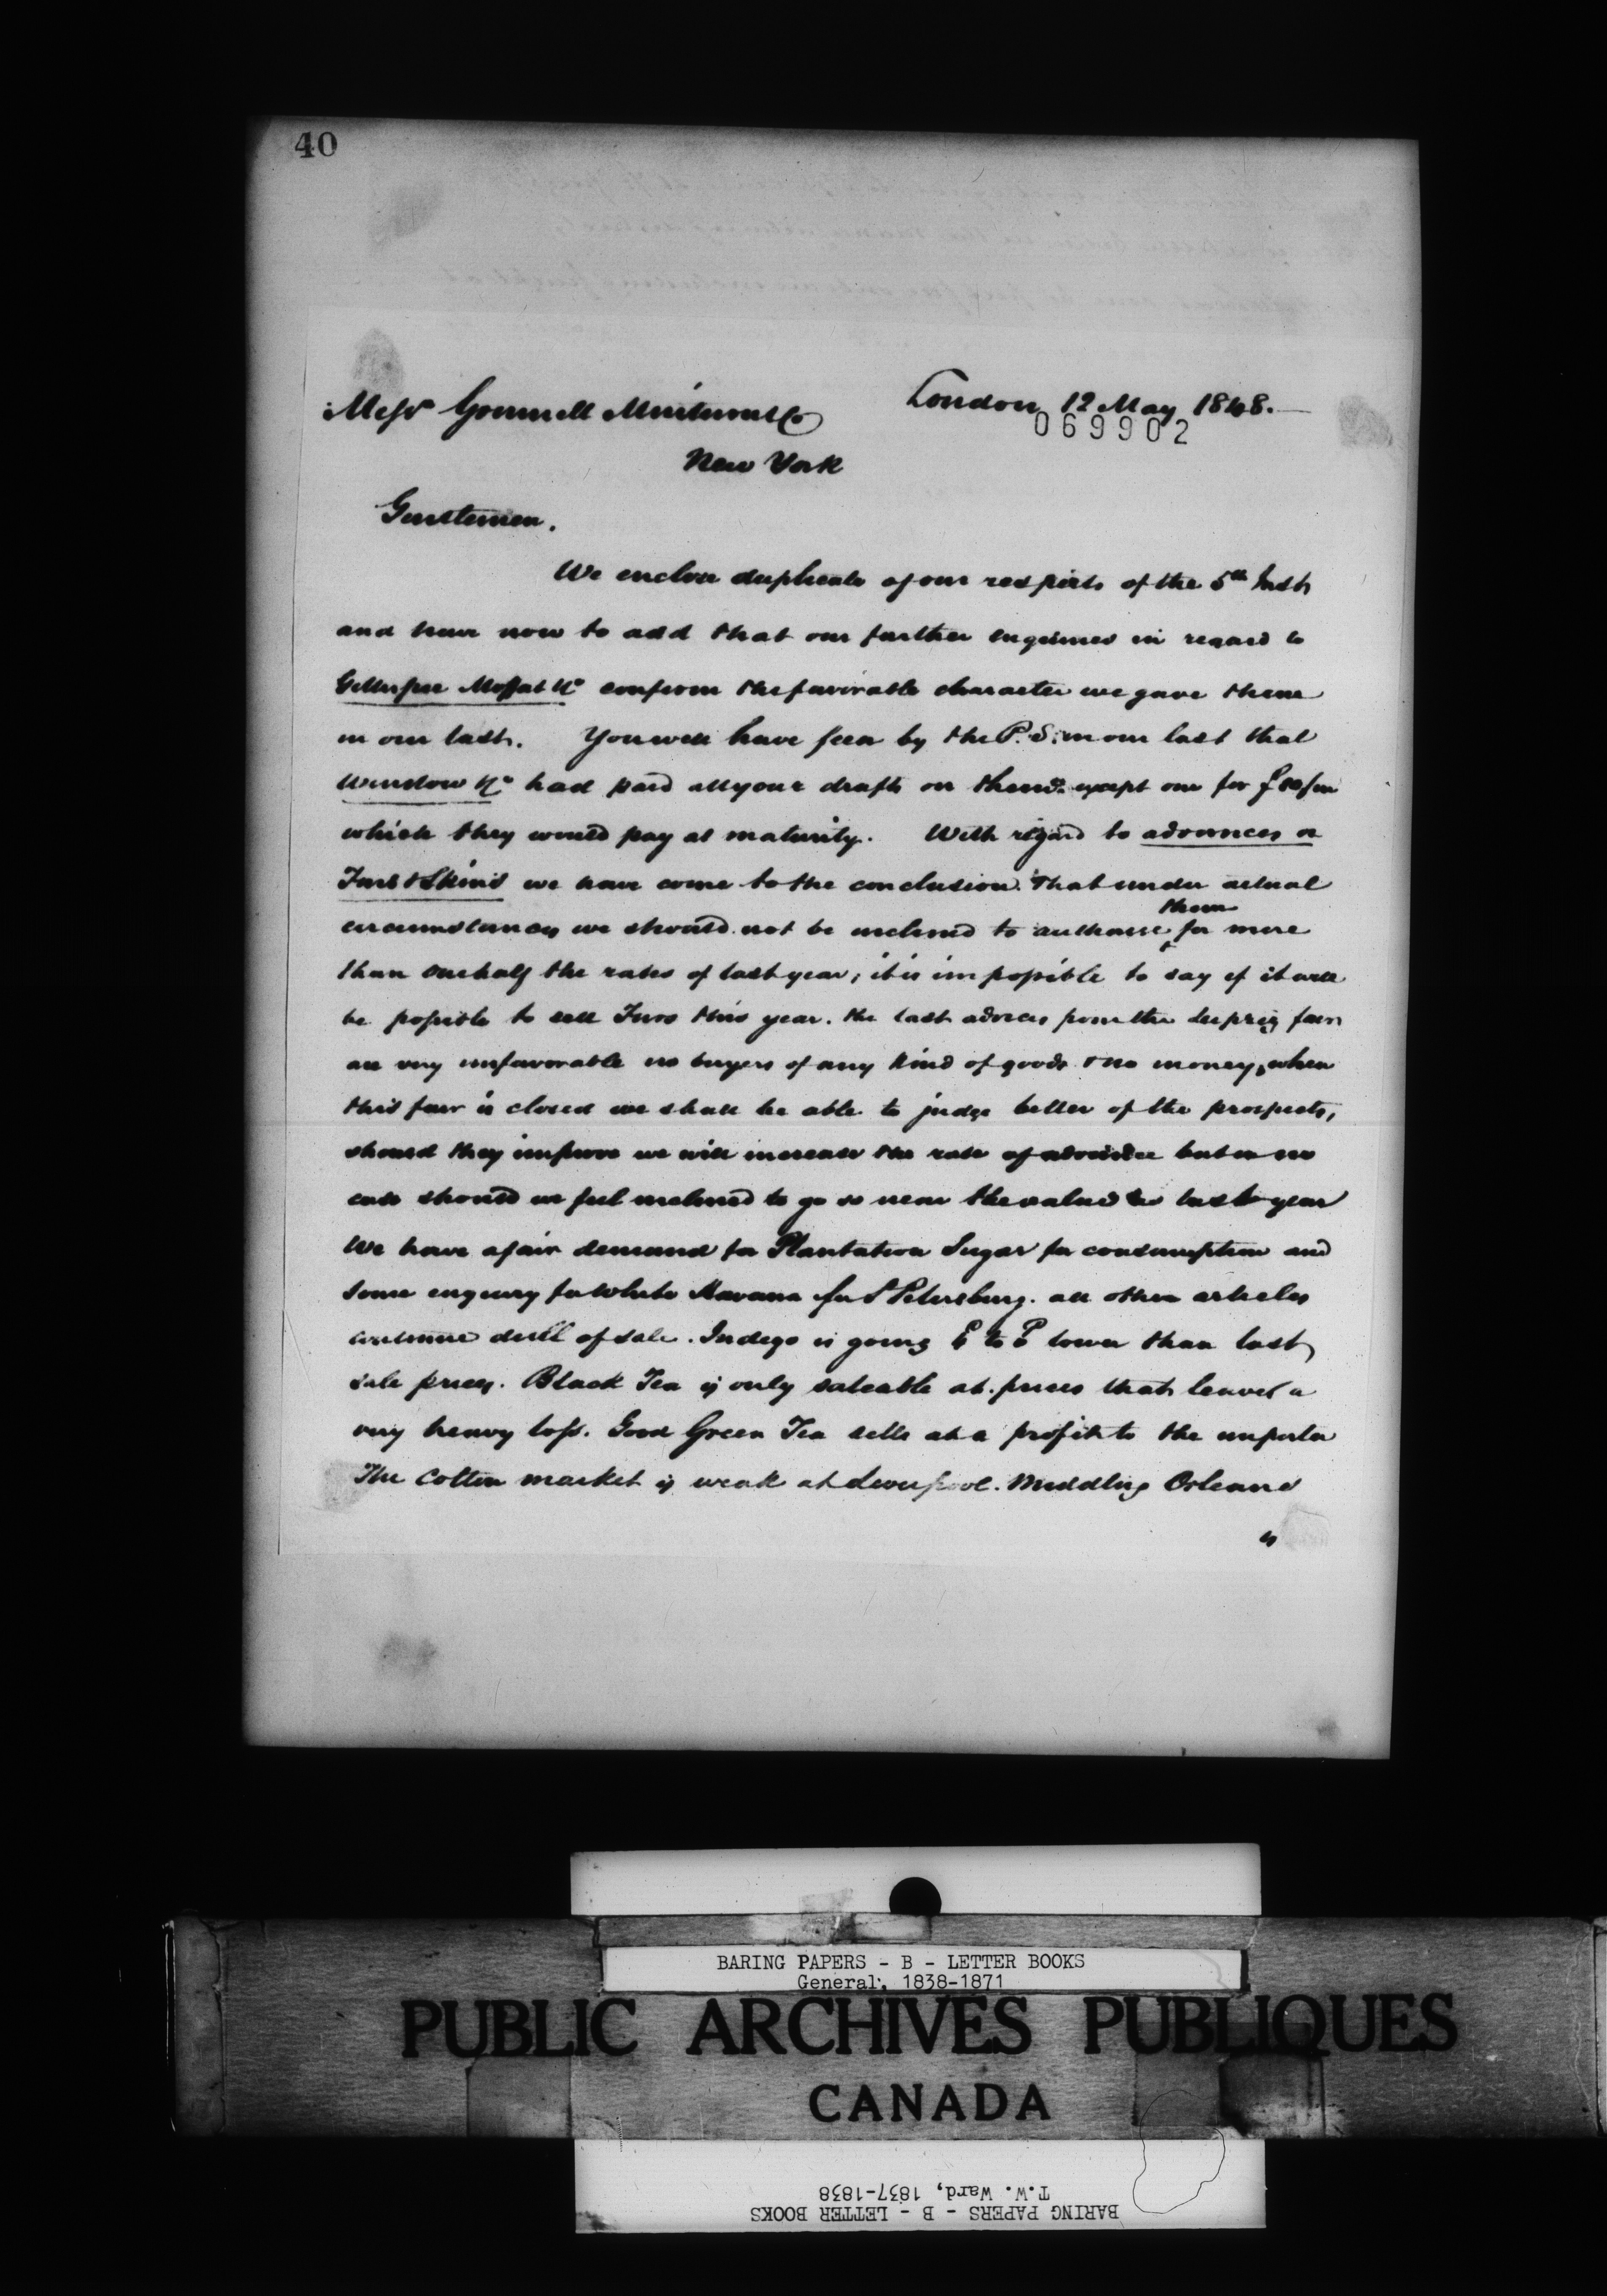 40
London 12 May 1848.
069902
Messrs Grinnell Minturn & Co
New York
Gentlemen.
We enclose duplicate of our respects of the 5th Inst
and have now to add that our further enquiries in regard to
Gillespie Moffat & Co confirm the favorable character we gave them
in our last. You will have seen by the P.S. in our last that
Winslow & Co had paid all your drafts on them except one for
which they would pay at maturity. With regard to advances on
Furs & Skins we have come to the conclusion that under actual
circumstances we should not be inclined to authorise them for more
than one half the rates of last year; it is impossible to say if it will
be possible to sell Furs this year. the last advices from the Leipzig fair
are very unfavorable no buyers of any kind of goods & no money, when
this fair is closed we shall be able to judge better of the prospects,
should they improve we will increase the rate of advance but in no
case should we feel inclined to go so near the value as last year
We have a fair demand for Plantation Sugar for consumption and
some enquiry for White Havana for St Petersburg. all other articles
continue dull of sale. Indigo is going to lower than last
sale prices. Black Tea is only saleable at prices that leaves a
very heavy loss. Good Green Tea sells at a profit to the importer
The Cotton market is weak at Liverpool. Middling Orleans
is
BARING PAPERS - B - LETTER BOOKS
General, 1838-1871
PUBLIC ARCHIVES PUBLIQUES
CANADA
BARING PAPERS - B - LETTER BOOKS
T.W. Ward, 1837-1838